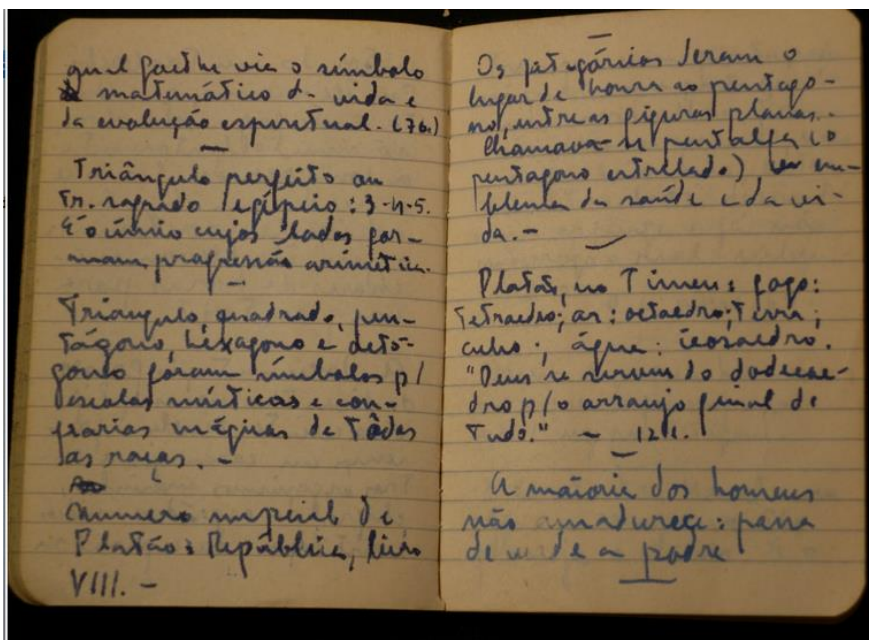 qual Goethe via o símbolo
matemático da vida e
da evolução espiritual. (76.)
Triângulo perfeito ou
Tr. sagrado egípcio: 3-4-5.
É o único cujos lados for-
mam progressão aritmética.
Triangulo, quadrado, pen-
tágono, hexagono e octó-
gono fóram símbolos p/
escolas místicas e con-
frarias mágicas de tôdas
as raças. -
Numero nupcial de
Platão: República, livro
VIII. -
Os pitagóricos deram o
lugar de honra ao pentago-
no, entre as figuras planas. -
Chamava-se pentalfa (o
pentagono estrelado), em-
blema da saúde e da vi-
da. -
Platão, no Timeu: fogo:
Tetraedro; ar: octaedro; Terra;
cubo; água: icosaedro.
"Deus se serviu do dodecae-
dro p/ o arranjo final de
Tudo." -
A maioria dos homens
não amadurece: passa
de verde a podre